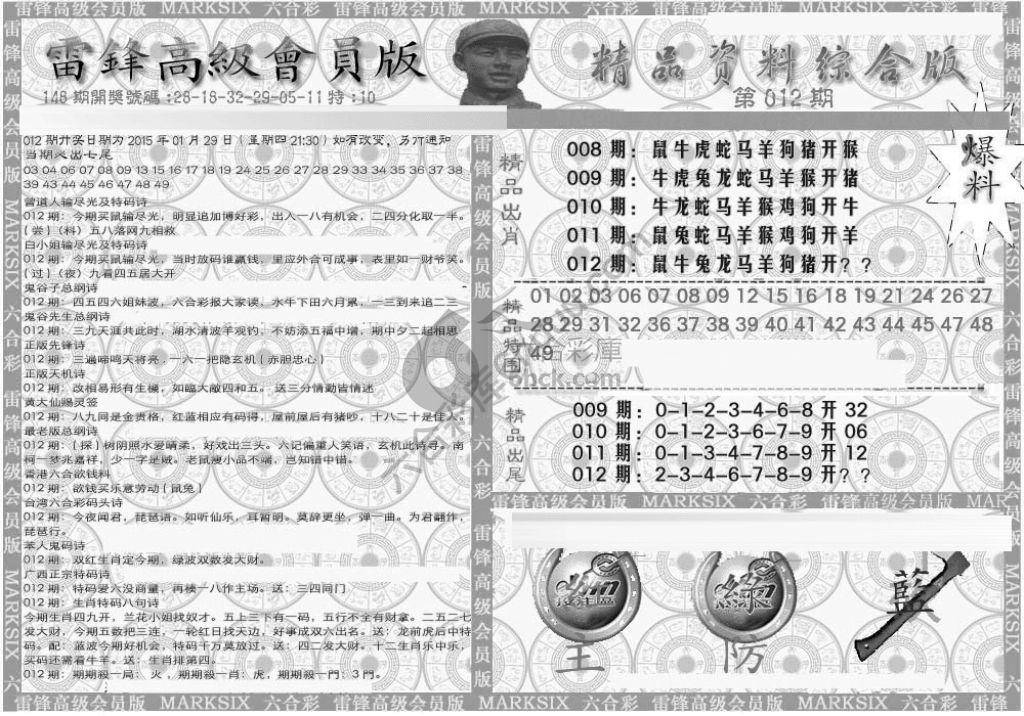 雷锋高级会员版 MARKSIX 六合彩 雷锋高级会员版 MARKSIX 六合彩 雷锋高级会员版 MARKSIX 六合彩 雷锋
雷鋒高級會員版
精品资料综合版
148 期開獎號碼:28-18-32-29-05-11 特:10
第 012 期
爆料
012 期开奖日期为 2015 年 01 月 29 日（星期四 21:30）如有改变，另行通知
当期必出七尾
03 04 06 07 08 09 13 15 16 17 18 19 24 25 26 27 28 29 33 34 35 36 37 38
39 43 44 45 46 47 48 49
曾道人输尽光及特码诗
012 期：今期买鼠输尽光，明显追加博好彩，出入一八有机会，二四分化取一半。
{尝}{料} 五八落网九相救
白小姐输尽光及特码诗
012 期：今期买羊输尽光，当时放码谁赢钱，里应外合可成事，表里如一财爷笑。
{过}{夜} 九看四五居大开
鬼谷子总纲诗
012 期：四五四六姐妹波，六合彩报大家读，水牛下田六月累，一三到来追二三
鬼谷先生总纲诗
012 期：三九天涯共此时，湖水清波羊观钓，不妨添五福中增，期中夕二起相思
正版先锋诗
012 期：三遍啼鸣天将亮，一六一把隐玄机{赤胆忠心}
正版天机诗
012 期：改相易形有生機，如臨大敵四和五。送三分情勤皆情迷
黄大仙赐灵签
012 期：八九同是金贵格，红蓝相应有码得，屋前屋后有猪吵，十八二十是佳人。
最老版总纲诗
012 期：{探}树阴照水爱晴柔，好戏出三头。六记偏重人笑语，玄机此诗寻。南
柯一梦兆嘉祥，少一字是贼。老鼠搜小品不端，岂知错中错。
香港六合欲钱料
012 期：欲钱买乐意劳动{鼠兔}
台湾六合彩码头诗
012 期：今夜闻君，琵琶语。如听仙乐，耳暂明。莫辞更坐，弹一曲。为君翻作，
琵琶行。
本人鬼码诗
012 期：双红生肖定今期，绿波双数发大财。
广西正宗特码诗
012 期：特码爱六没商量，再楼一八作主场。送：三四同门
012 期：生肖特码八句诗
今期生肖四九开，兰花小姐找奴才。五上三下有一码，五行不全有财拿。二五二七
发大财，今期五数把三连，一轮红日找天边，好事成双六出名。送：龙前虎后中特
码。配：蓝波今期好机会，特码千万莫放过。送：四二发大财。十二生肖乐中乐，
买码还需看牛羊。送：生肖排第四。
012 期：期期殺一局：火，期期殺一肖：虎，期期殺一門：3 門。
精品出肖
008 期：鼠牛虎蛇马羊狗猪开猴
009 期：牛虎兔龙蛇马羊猴开猪
010 期：牛龙蛇马羊猴鸡狗开牛
011 期：鼠兔蛇马羊猴鸡狗开羊
012 期：鼠牛兔龙马羊狗猪开？？
精品特围
01 02 03 06 07 08 09 12 15 16 18 19 21 24 26 27
28 29 31 32 36 37 38 39 40 41 42 43 44 45 47 48
49
彩庫
6hck.com
精品出尾
009 期：0-1-2-3-4-6-8 开 32
010 期：0-1-2-3-6-7-9 开 06
011 期：0-1-3-4-7-8-9 开 12
012 期：2-3-4-6-7-8-9 开？？
雷锋高级会员版 MARKSIX 六合彩 雷锋高级会员版
綠
藍
主 防
雷锋高级会员版 MARKSIX 六合彩 雷锋高级会员版 MARKSIX 六合彩 雷锋高级会员版 MARKSIX 六合彩 雷锋